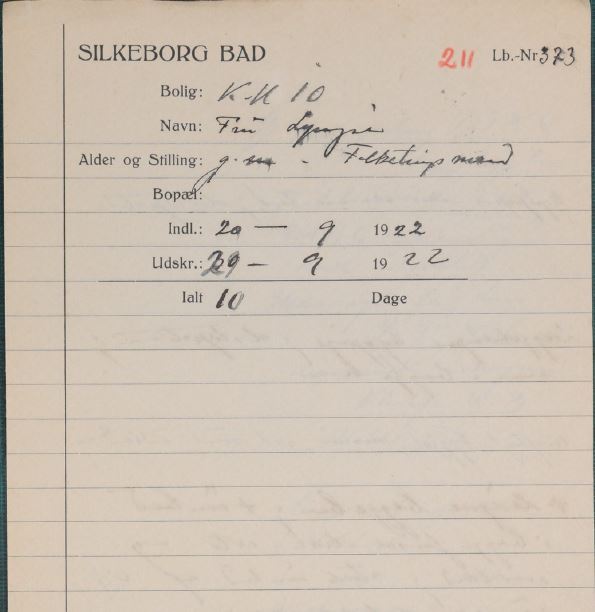 SILKEBORG BAD 211 Lb.-Nr 373
Bolig: K-K 10
Navn: Fru
Alder og Stilling: g. m - Folketingsmand
Bopæl:
Indl.: 20 — 9 1922
Udskr.: 29 — 9 1922
Ialt 10 Dage